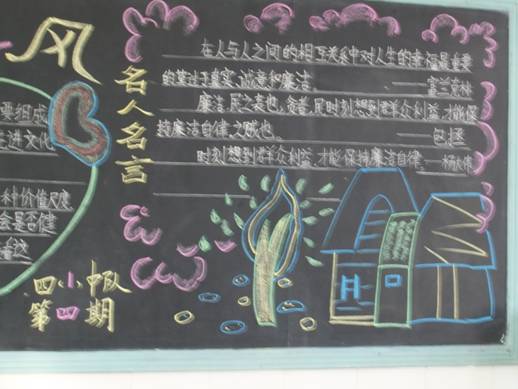 风
名人名言
在人与人之间的相互关系中对人生的幸福最重要
的莫过于真实、诚意和廉洁
——富兰克林
廉洁,民之表也,贪
时刻想到群众利益才能保
持廉洁自律
——包拯
时刻想到群众利益才能保持廉洁自律——杨
要组成
走进文化
价值尺度
会是否健
四小中队
第四期